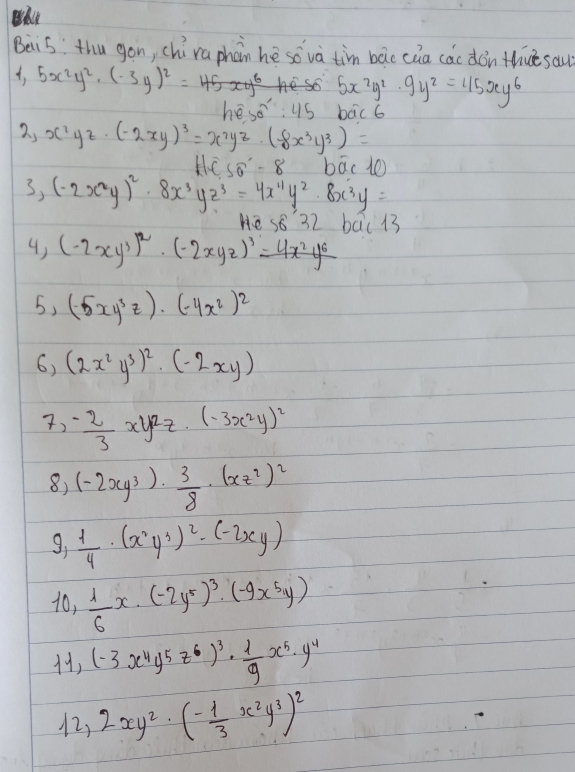 Bài 5: thu gọn, chỉ ra phần hệ số và tìm bậc của các đơn thức sau:
1, 5x²y² . (-3y)² = 45xy⁶ hệ số 5x²y² . 9y² = 45xy⁶
hệ số : 45 bậc 6
2, x²yz . (-2xy)³ = x²yz . (-8x³y³) =
Hệ số - 8 bậc 10
3, (-2x²y)² . 8x³yz³ = 4x⁴y² . 8x³y =
Hệ số 32 bậc 13
4, (-2xy³)² . (-2xyz)³ = 4x²y⁶
5, (-5xy³z) . (-4x²)²
6, (2x²y³)² . (-2xy)
7, -2/3 xy²z . (-3x²y)²
8, (-2xy³) . 3/8 . (xz²)²
9, 1/4 . (x²y³)² . (-2xy)
10, 1/6 x . (-2y⁵)³ . (-9x⁵y)
11, (-3x⁴y⁵z⁶)³ . 1/9 x⁵ . y⁴
12, 2xy² . (-1/3 x²y³)²